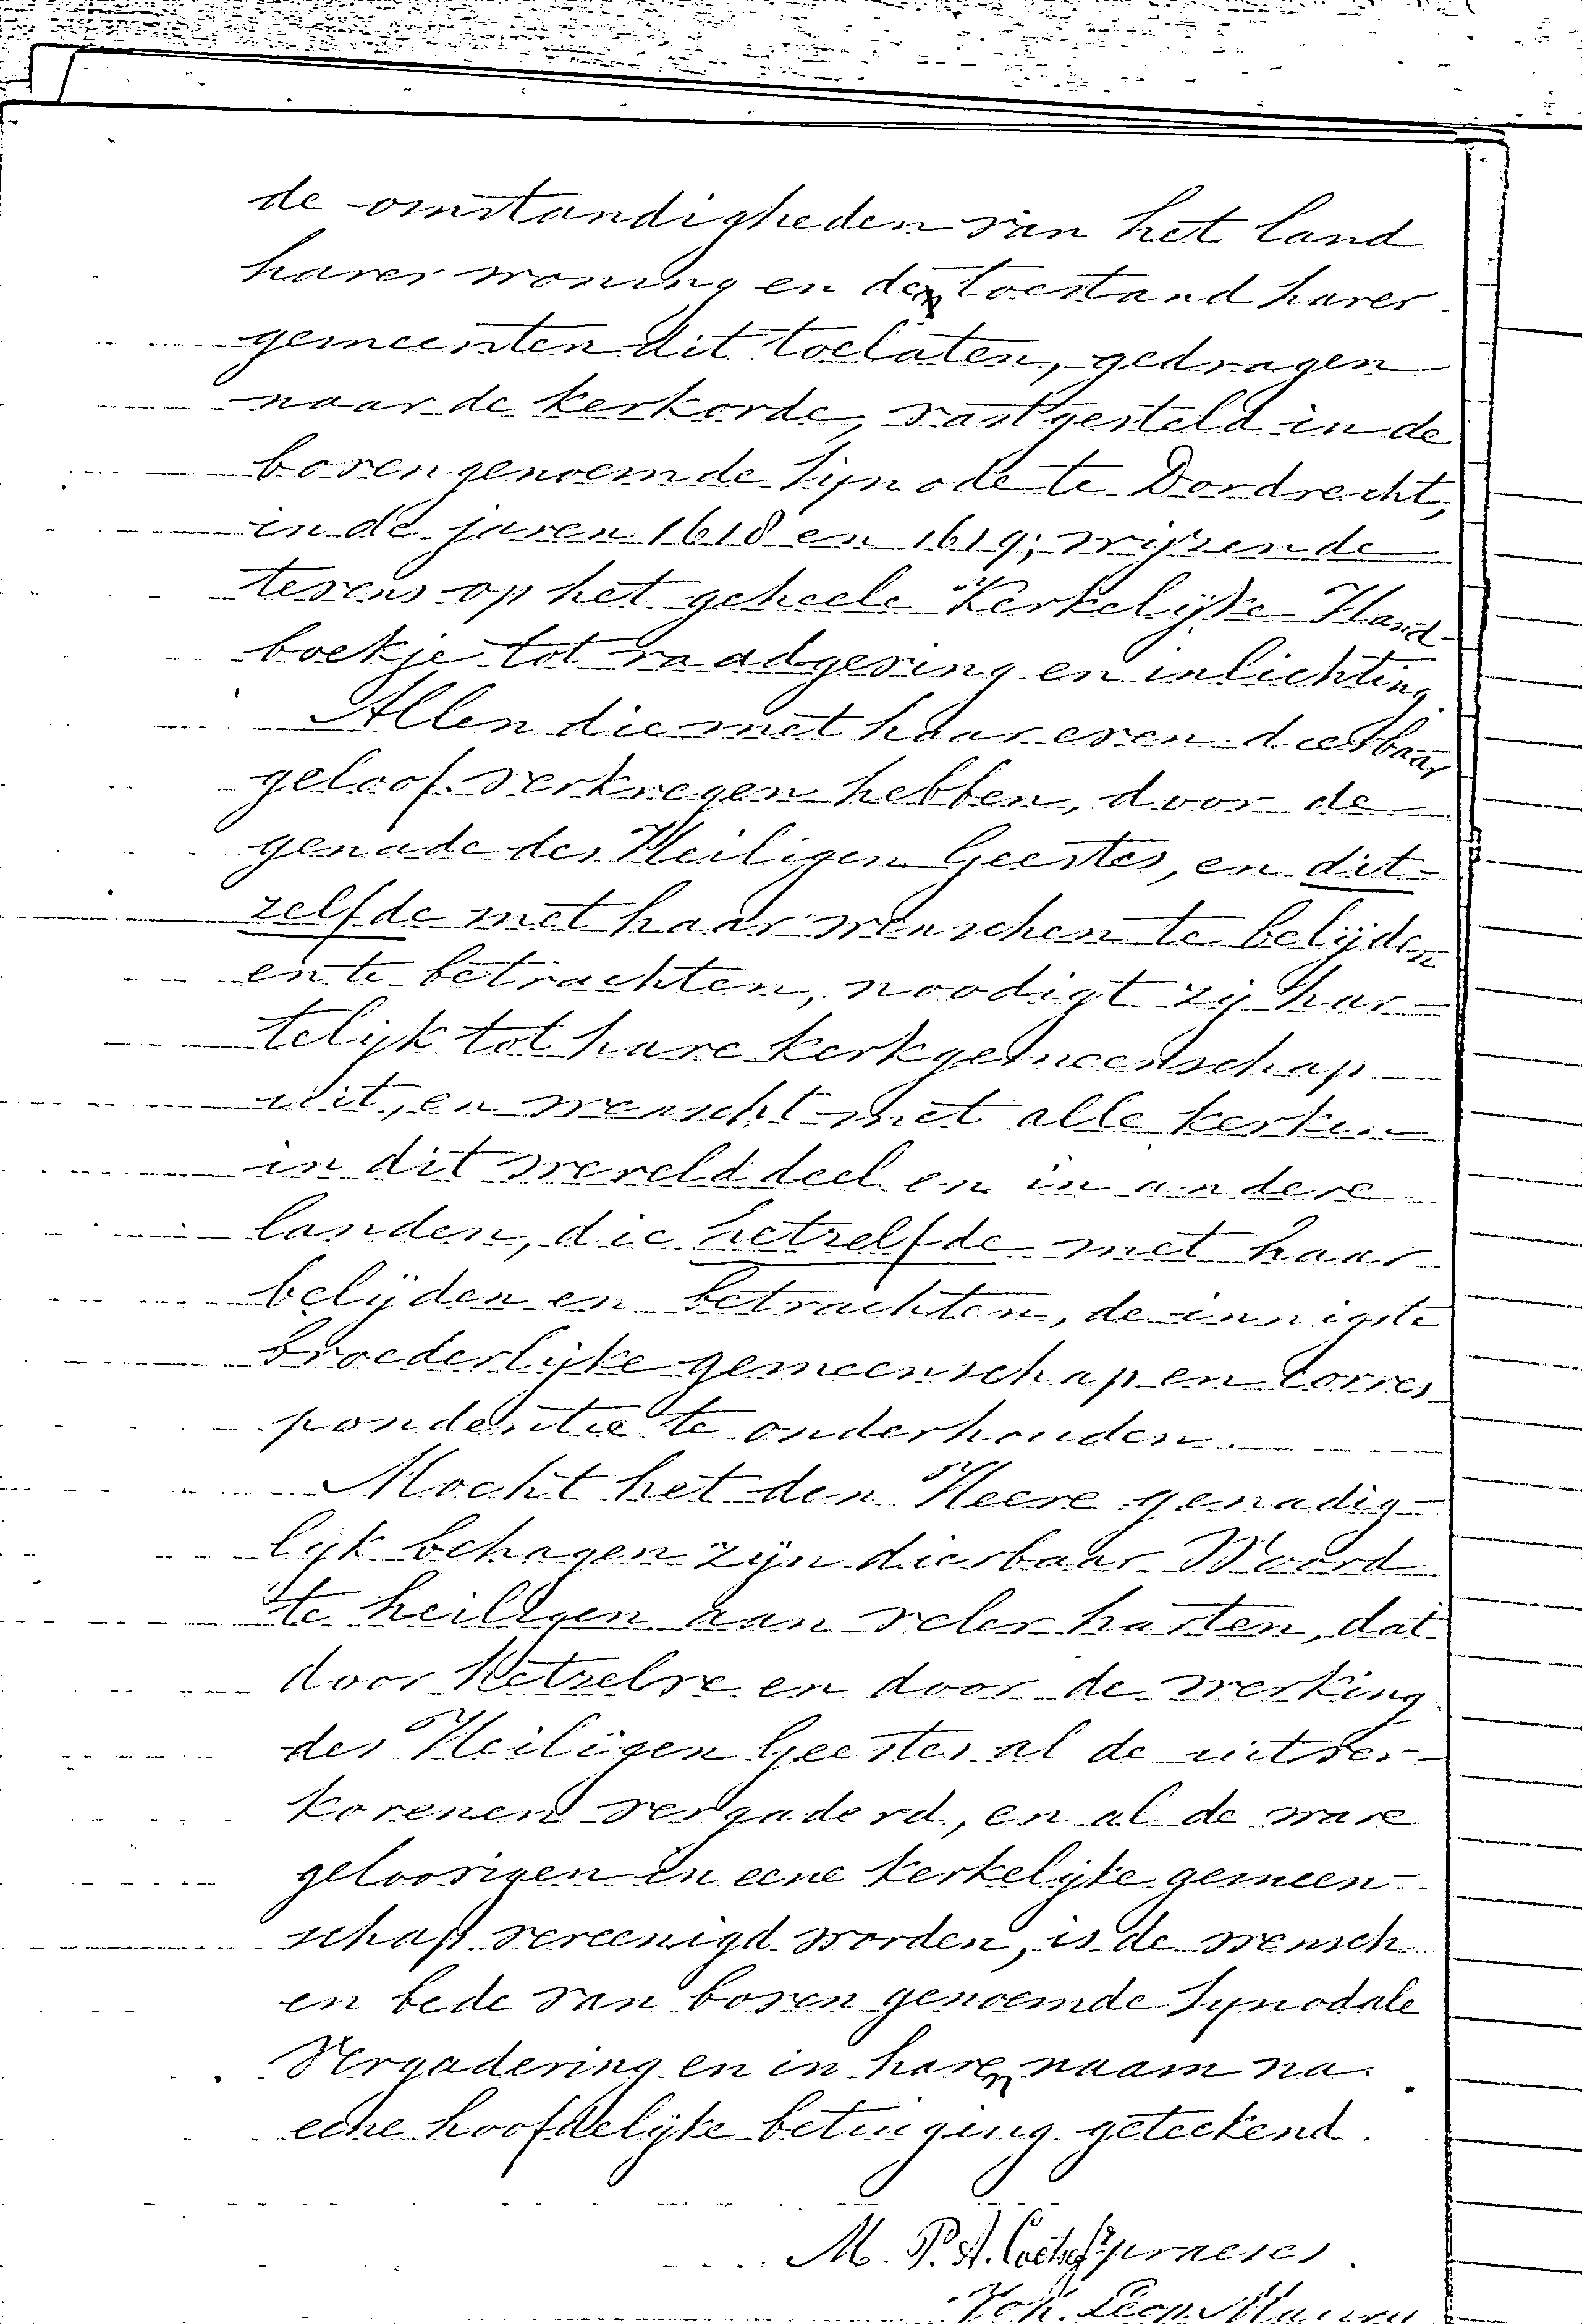 de omstandigheden van het land
harer woning en de toestand harer
gemeenten dit toelaten, gedragen
naar de kerkorde, vastgesteld in de
bovengenoemde Synode te Dordrecht,
in de jaren 1618 en 1619; wijzende
tevens op het geheele Kerkelijke Hand-
boekje tot raadgeving en inlichting.
Allen die met haar even dierbaar
geloof verkregen hebben, door de
genade des Heiligen Geestes, en dit-
zelfde met haar wenschen te belijden
en te betrachten, noodigt zij har-
telijk tot hare kerkgemeenschap
uit, en wenscht met alle kerken
in dit werelddeel en in andere
landen, die hetzelfde met haar
belijden en betrachten, de innigste
broederlijke gemeenschap en corres-
pondentie te onderhouden.
Mocht het den Heere genadig-
lijk behagen zijn dierbaar Woord
te heiligen aan veler harten, dat
door hetzelve en door de werking
des Heiligen Geestes al de uitver-
korenen vergaderd, en al de ware
geloovigen in eene kerkelijke gemeen-
schap vereenigd worden, is de wensch
en bede van boven genoemde Synodale
Vergadering en in hare naam na
eene hoofdelijke betuiging geteekend.
M. P. A. Coetsee praeses.
Joh. Leop.